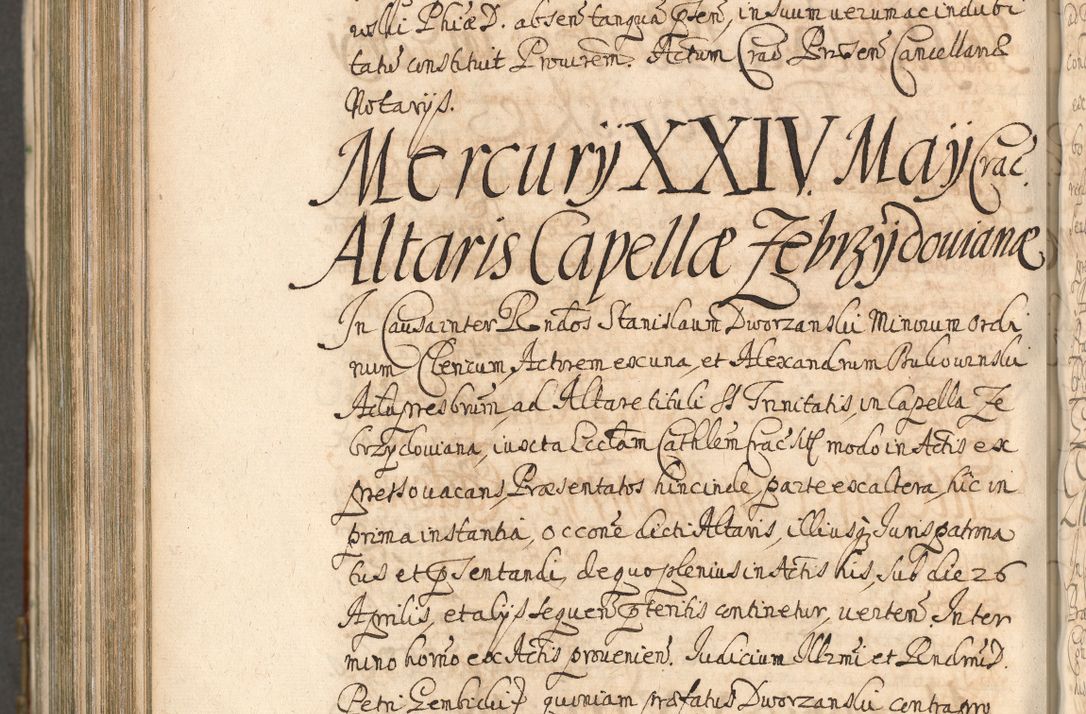 wski Phiæ D. absen̄ tanquā p̄sen̄, in suum uerum ac indubi
tatū constituit Procurem̄. Actum Crac̄ Prǣsen̄ Cancellariæ
Notarijs.
Mercurij XXIV. Maij Crac̄.
Altaris Capellæ Zebrzydouianæ
In Causa inter Rndos Stanislaum Dworzanski Minorum Ordi
num Clericum, Actorem ex una, et Alexandrum Bukowinski
Actū presbrum ad Altare tituli SS Trinitatis, in Capella Ze
brzydouiana, iuxta Ecclam Cathlem Crac̄ sit̄ modo in Actis ex
presso uacans Præsentatos hincinde, parte ex altera, hic in
prima instantia, occone dicti Altaris, illiusq; Juris patrona
tus et p̄sentandi, de quo plenius in Actis his, sub die 26
Aprilis, et alijs sequen̄ p̄teritis continetur, uerten̄. In ter
mino horno ex Actis prouenien̄. Judicium Illrmi et Rndmi D.
Petri Gembicki quoniam præfatus Dworzanski contra pro